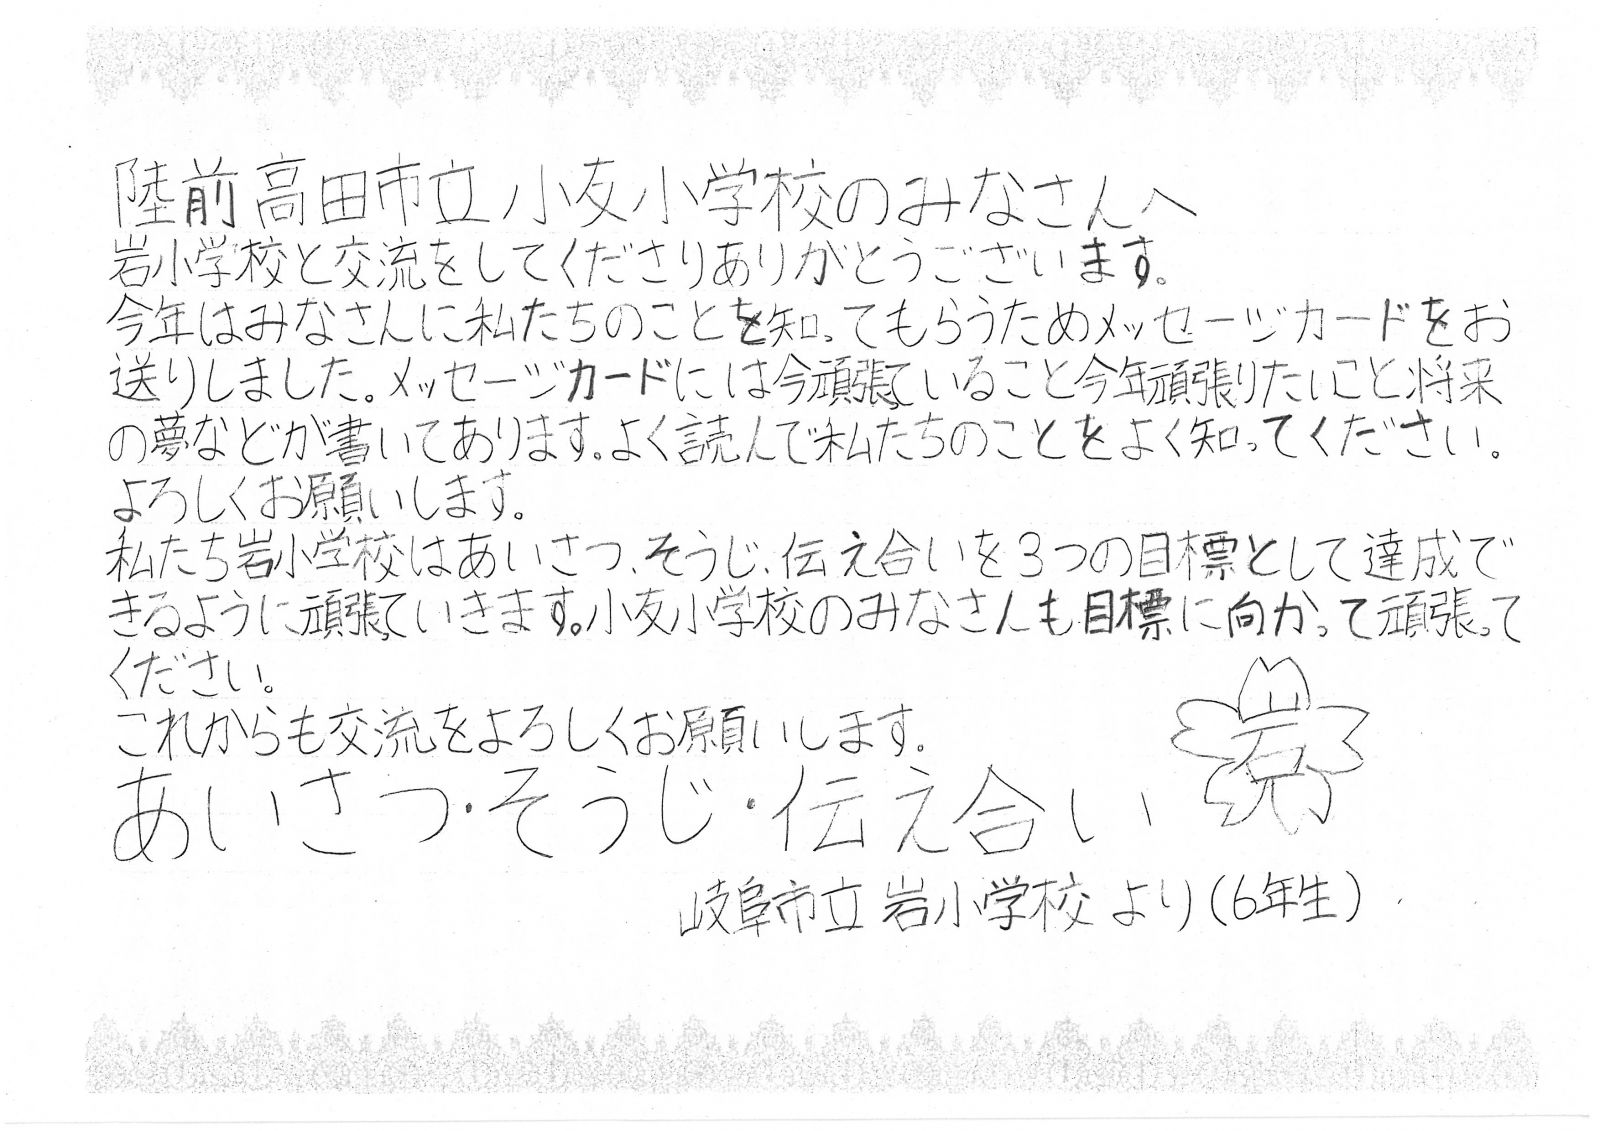 陸前高田市立小友小学校のみなさんへ
岩小学校と交流をしてくださりありがとうございます。
今年はみなさんに私たちのことを知ってもらうためメッセージカードをお
送りしました。メッセージカードには今頑張っていること今年頑張りたいこと将来
の夢などが書いてあります。よく読んで私たちのことをよく知ってください。
よろしくお願いします。
私たち岩小学校はあいさつ、そうじ、伝え合いを3つの目標として達成で
きるように頑張っていきます。小友小学校のみなさんも目標に向かって頑張って
ください。
これからも交流をよろしくお願いします。
岩小
あいさつ・そうじ・伝え合い
岐阜市立岩小学校より(6年生)